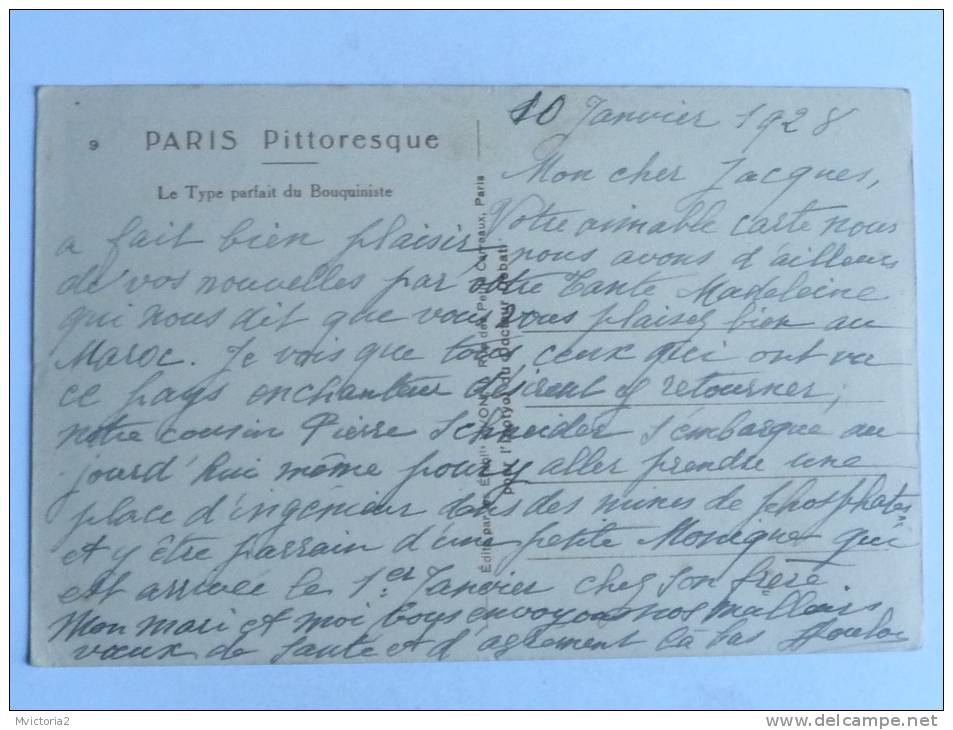 9 PARIS Pittoresque
Le Type parfait du Bouquiniste
10 Janvier 1928
Mon cher Jacques,
Votre aimable carte nous
a fait bien plaisir nous avons d'ailleurs
de vos nouvelles par votre Tante Madeleine
qui nous dit que vous vous plaisez bien au
Maroc. Je vois que tous ceux qui ont vu
ce pays enchanteur désirent y retourner,
notre cousin Pierre Schneider s'embarque au
jourd'hui même pour y aller prendre une
place d'ingénieur dans des mines de phosphates
et y être parrain d'une petite Monique qui
est arrivée le 1er Janvier chez son frère.
Mon mari et moi vous envoyons nos meilleurs
vœux de santé et d'agrément là bas
Édité par les Rue des Petits Carreaux, Paris
pour l'Iotyol du Docteur Debat
Mvictoria2
www.delcampe.net